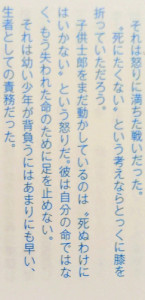 それは怒りに満ちた戦いだった。
〝死にたくない〟という考えならとっくに膝を
折っていただろう。
子供士郎をまだ動かしているのは〝死ぬわけに
はいかない〟という怒りだ。彼は自分の命ではな
く、もう失われた命のために足を止めない。
それは幼い少年が背負うにはあまりにも早い、
生者としての責務だった。